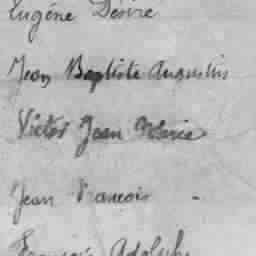 Eugène Désiré
Jean Baptiste Augustin
Victor Jean Marie
Jean Francois -
François Adolphe